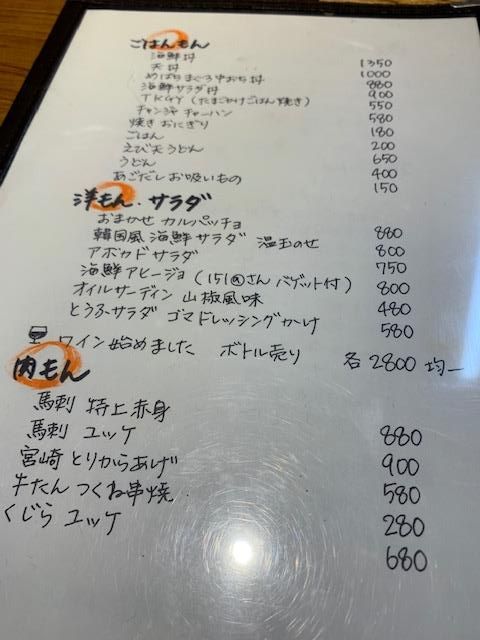 ごはんもん
海鮮丼 1350
天丼 1000
めばちまぐろ中おち丼 880
海鮮サラダ丼 900
TKGY (たまごかけごはん焼き) 550
チャンジャ チャーハン 580
焼き おにぎり 180
ごはん 200
えび天うどん 650
うどん 400
あごだし お吸いもの 150
洋もん・サラダ
おまかせ カルパッチョ 880
韓国風 海鮮サラダ 温玉のせ 800
アボカドサラダ 750
海鮮アヒージョ (151Aさん バゲット付) 800
オイルサーディン 山椒風味 480
とうふサラダ ゴマドレッシングかけ 580
ワイン始めました ボトル売り 各2800 均一
肉もん
馬刺 特上赤身 880
馬刺 ユッケ 900
宮崎 とりからあげ 580
牛たん つくね串焼 280
くじら ユッケ 680